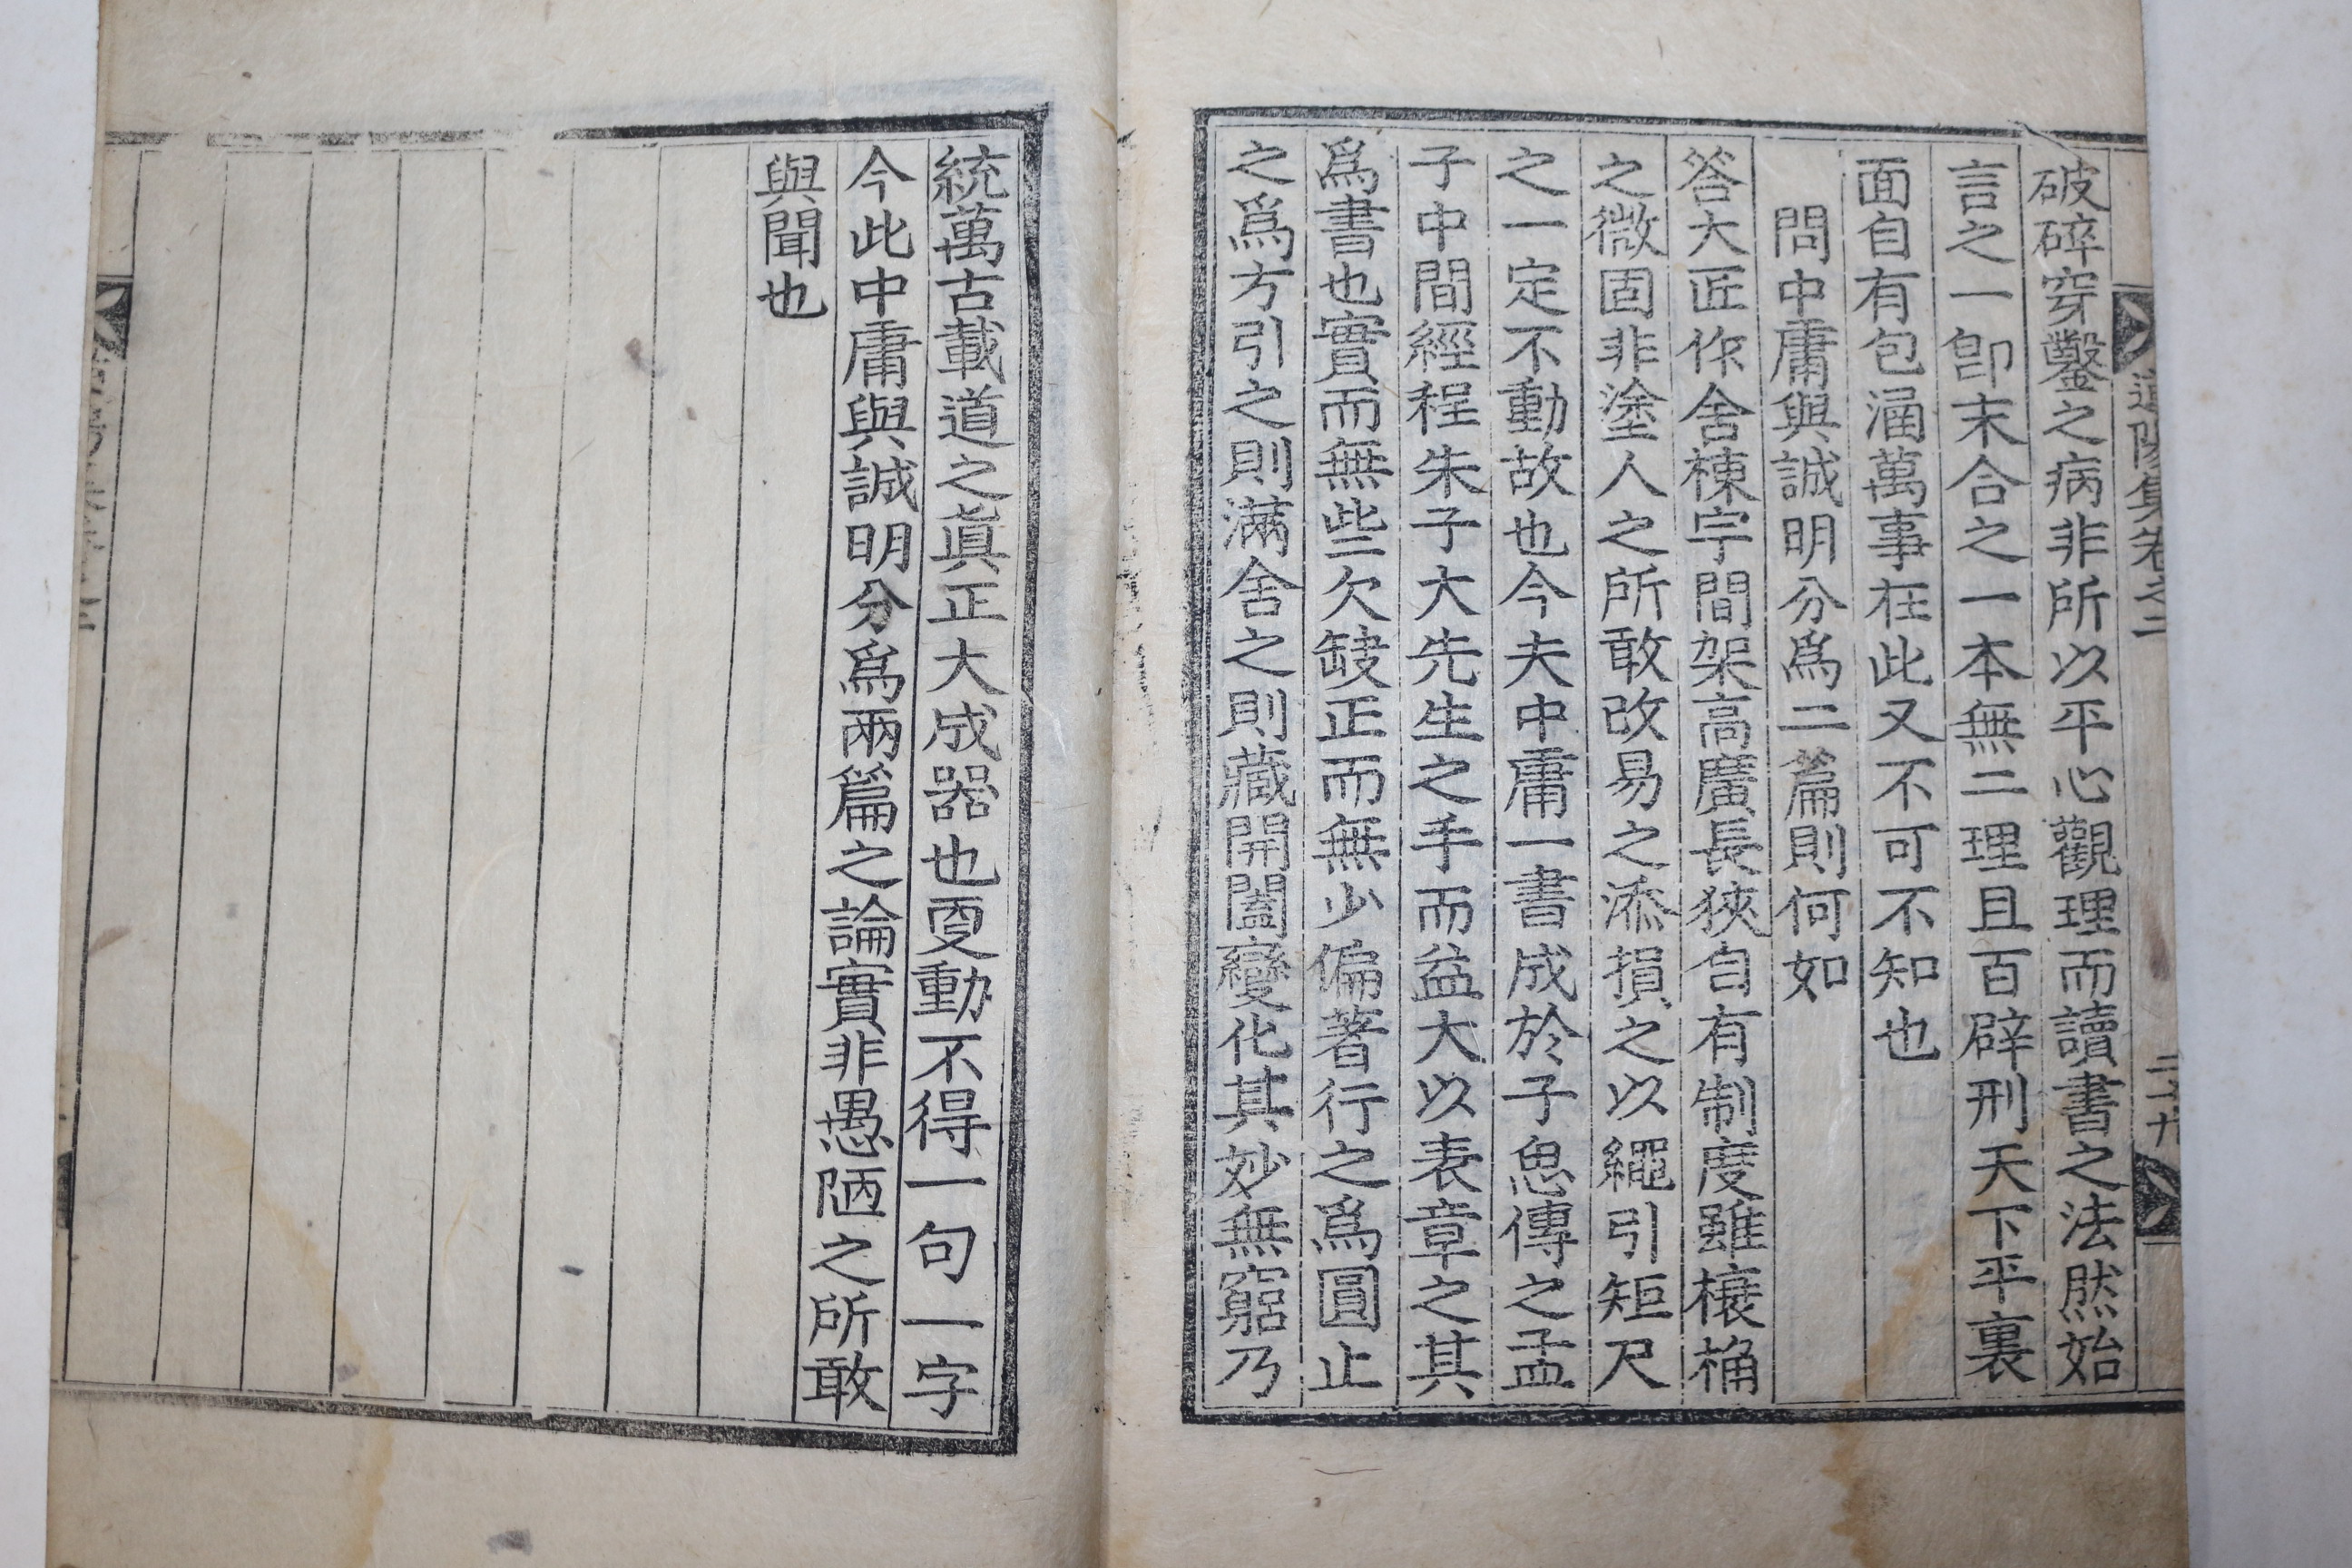 破碎穿鑿之病非所以平心觀理而讀書之法然始
言之一卽末合之一本無二理且百辟刑天下平裏
面自有包涵萬事在此又不可不知也
問中庸與誠明分爲二篇則何如
答大匠作舍棟宇間架高廣長狹自有制度雖榱桷
之微固非塗人之所敢改易之添損之以繩引矩尺
之一定不動故也今夫中庸一書成於子思傳之孟
子中間經程朱子大先生之手而益大以表章之其
爲書也實而無些欠缺正而無少偏著行之爲圓止
之爲方引之則滿舍之則藏開闔變化其妙無窮乃
統萬古載道之眞正大成器也更動不得一句一字
今此中庸與誠明分爲兩篇之論實非愚陋之所敢
與聞也
集卷之二